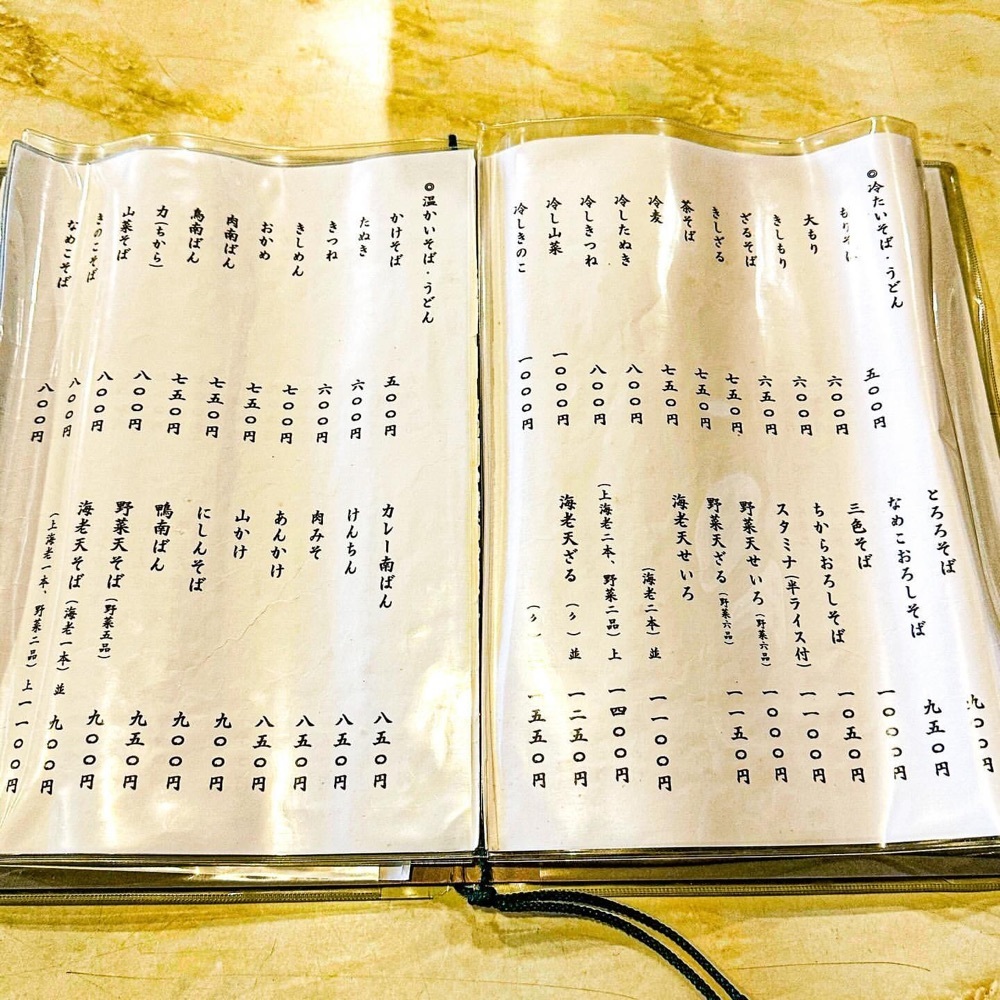 ◎冷たいそば・うどん
もりそば 五〇〇円
大もり 六〇〇円
きしもり 六〇〇円
ざるそば 六五〇円
きしざる 七五〇円
茶そば 七五〇円
冷麦 七五〇円
冷したぬき 八〇〇円
冷しきつね 八〇〇円
冷し山菜 一〇〇〇円
冷しきのこ 一〇〇〇円
とろろそば 九〇〇円
なめこおろしそば 九五〇円
三色そば 一〇〇〇円
ちからおろしそば 一〇五〇円
スタミナ(半ライス付) 一一〇〇円
野菜天せいろ(野菜六品) 一〇〇〇円
野菜天ざる(野菜六品) 一一五〇円
海老天せいろ
(海老二本)並 一一〇〇円
(上海老二本、野菜二品)上 一四〇〇円
海老天ざる(〃)並 一二五〇円
(〃) 一五五〇円
◎温かいそば・うどん
かけそば 五〇〇円
たぬき 六〇〇円
きつね 六〇〇円
きしめん 七〇〇円
おかめ 七五〇円
肉南ばん 七五〇円
鳥南ばん 七五〇円
力(ちから) 八〇〇円
山菜そば 八〇〇円
きのこそば 八〇〇円
なめこそば 八〇〇円
カレー南ばん 八五〇円
けんちん 八五〇円
肉みそ 八五〇円
あんかけ 八五〇円
山かけ 九〇〇円
にしんそば 九〇〇円
鴨南ばん 九五〇円
野菜天そば(野菜五品) 九〇〇円
海老天そば(海老一本)並 九〇〇円
(上海老一本、野菜二品)上 一一〇〇円